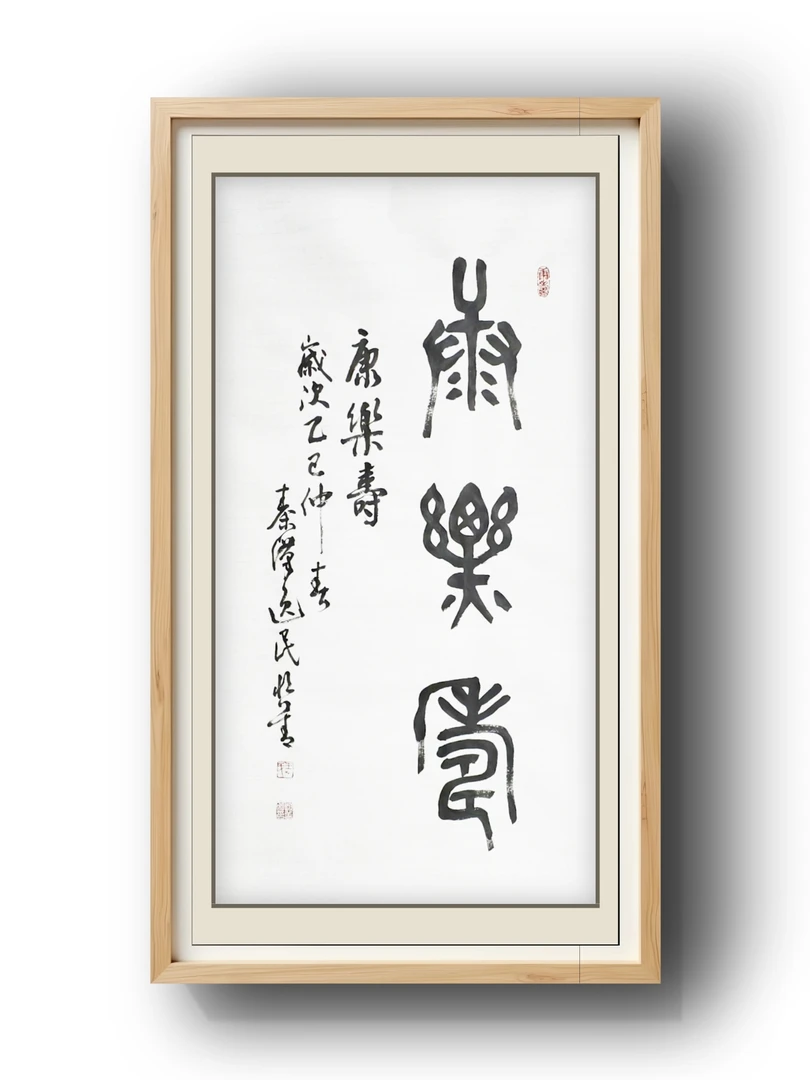 康樂壽
康樂壽
歲次乙巳仲春
秦漢逸民